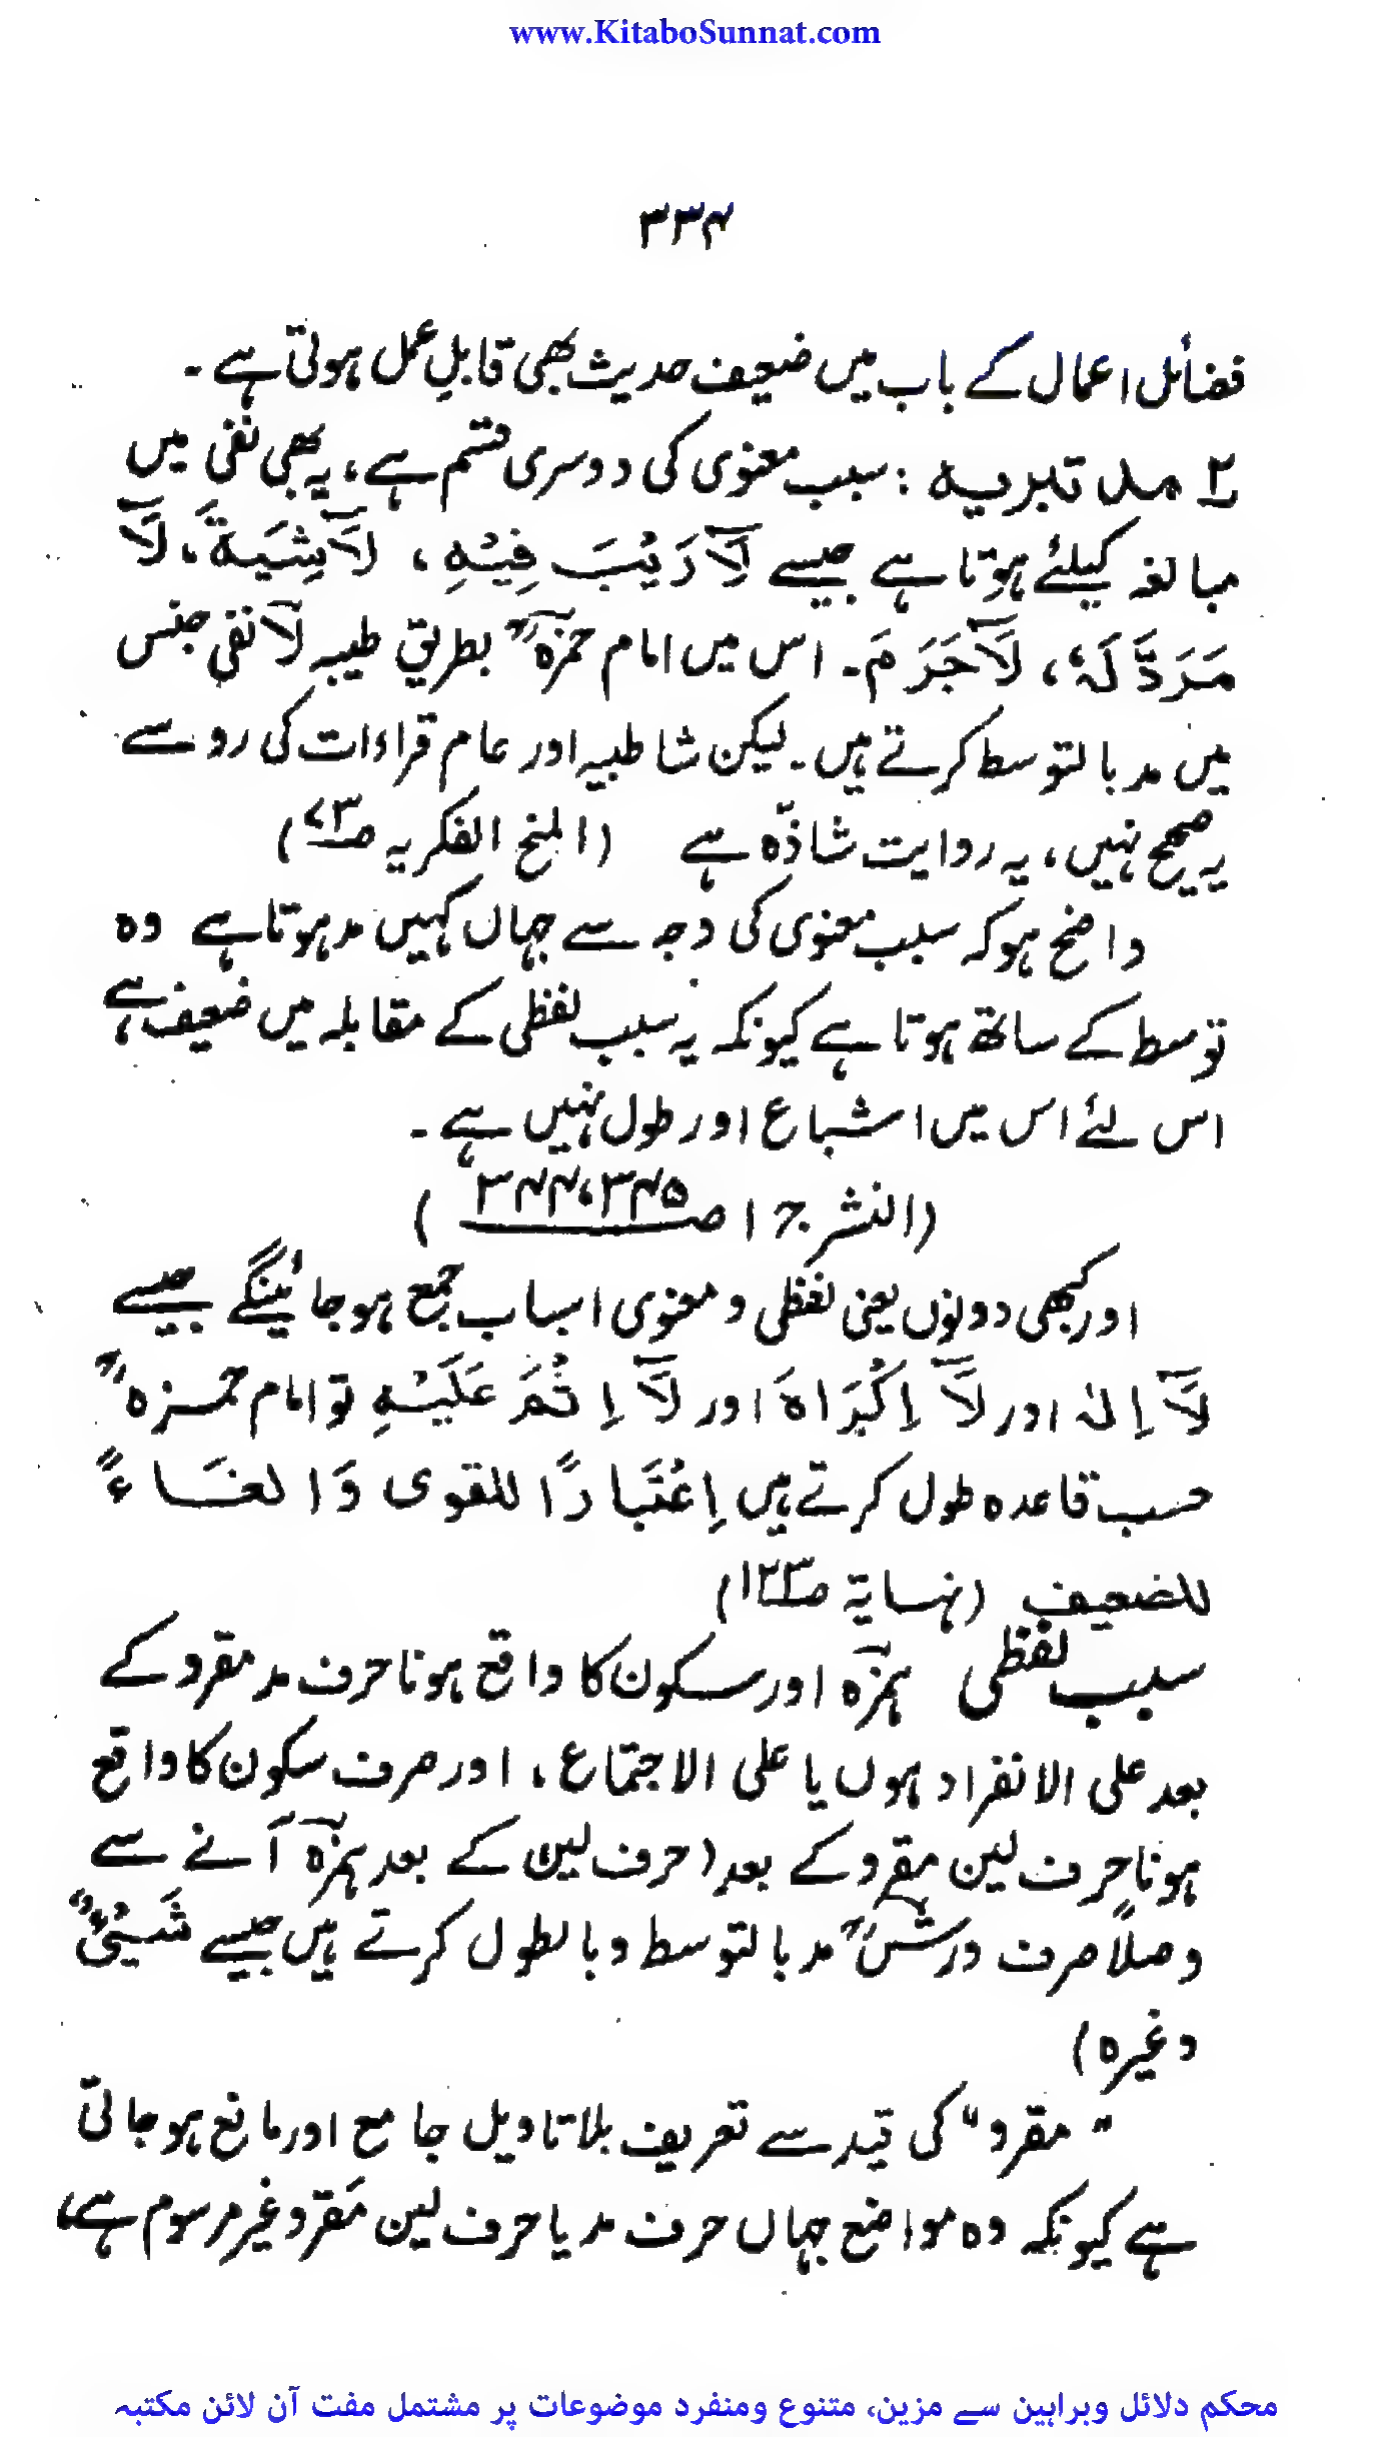 www.KitaboSunnat.com
۳۳۴
فضائل اعمال کے باب میں ضعیف حدیث بھی قابلِ عمل ہوتی ہے ۔
۲ مد تبریہ : سبب معنوی کی دوسری قسم ہے، یہ بھی نفی میں
مبالغہ کیلئے ہوتا ہے جیسے لَآ رَیْبَ فِیْهِ ، لَآ شِیَةَ ، لَآ
مَرَدَّ لَہٗ ، لَآ جَرَ مَ ۔ اس میں امام حمزہؒ بطریق طیبہ لآ نفی جنس
میں مد بالتوسط کرتے ہیں ۔ لیکن شاطبیہ اور عام قراءات کی رو سے
یہ صحیح نہیں ، یہ روایت شاذّہ ہے (المنح الفکریہ ص۷۳)
واضح ہو کہ سبب معنوی کی وجہ سے جہاں کہیں مد ہوتا ہے وہ
توسط کے ساتھ ہوتا ہے کیونکہ یہ سبب لفظی کے مقابلہ میں ضعیف ہے
اس لئے اس میں اشباع اور طول نہیں ہے ۔
(النشر ج ۱ ص ۳۴۵، ۳۴۴ )
اور کبھی دونوں یعنی لفظی و معنوی اسباب جمع ہو جائینگے جیسے
لَآ اِلٰہَ اور لَآ اِکْرَاہَ اور لَآ اِ ثْمَ عَلَیْهِ تو امام حمزہؒ
حسب قاعدہ طول کرتے ہیں اِعْتَبَارًا للقوی وَ الغَاءً
للضعیف (نہایة ص۱۲۳)
سبب لفظی ہمزہ اور سکون کا واقع ہونا حرف مد مقرو کے
بعد علی الانفراد ہوں یا علی الاجتماع ، اور صرف سکون کا واقع
ہونا حرف لین مقرو کے بعد (حرف لین کے بعد ہمزہ آنے سے
وصلاً صرف ورشؒ مد بالتوسط وبالطول کرتے ہیں جیسے شَیْئٌ
وغیرہ)
"مقرو" کی قید سے تعریف بلا تاویل جامع اور مانع ہو جاتی
ہے کیونکہ وہ مواضع جہاں حرف مد یا حرف لین مَقرو غیر مرسوم ہے،
محکم دلائل وبراہین سے مزین، متنوع ومنفرد موضوعات پر مشتمل مفت آن لائن مکتبہ